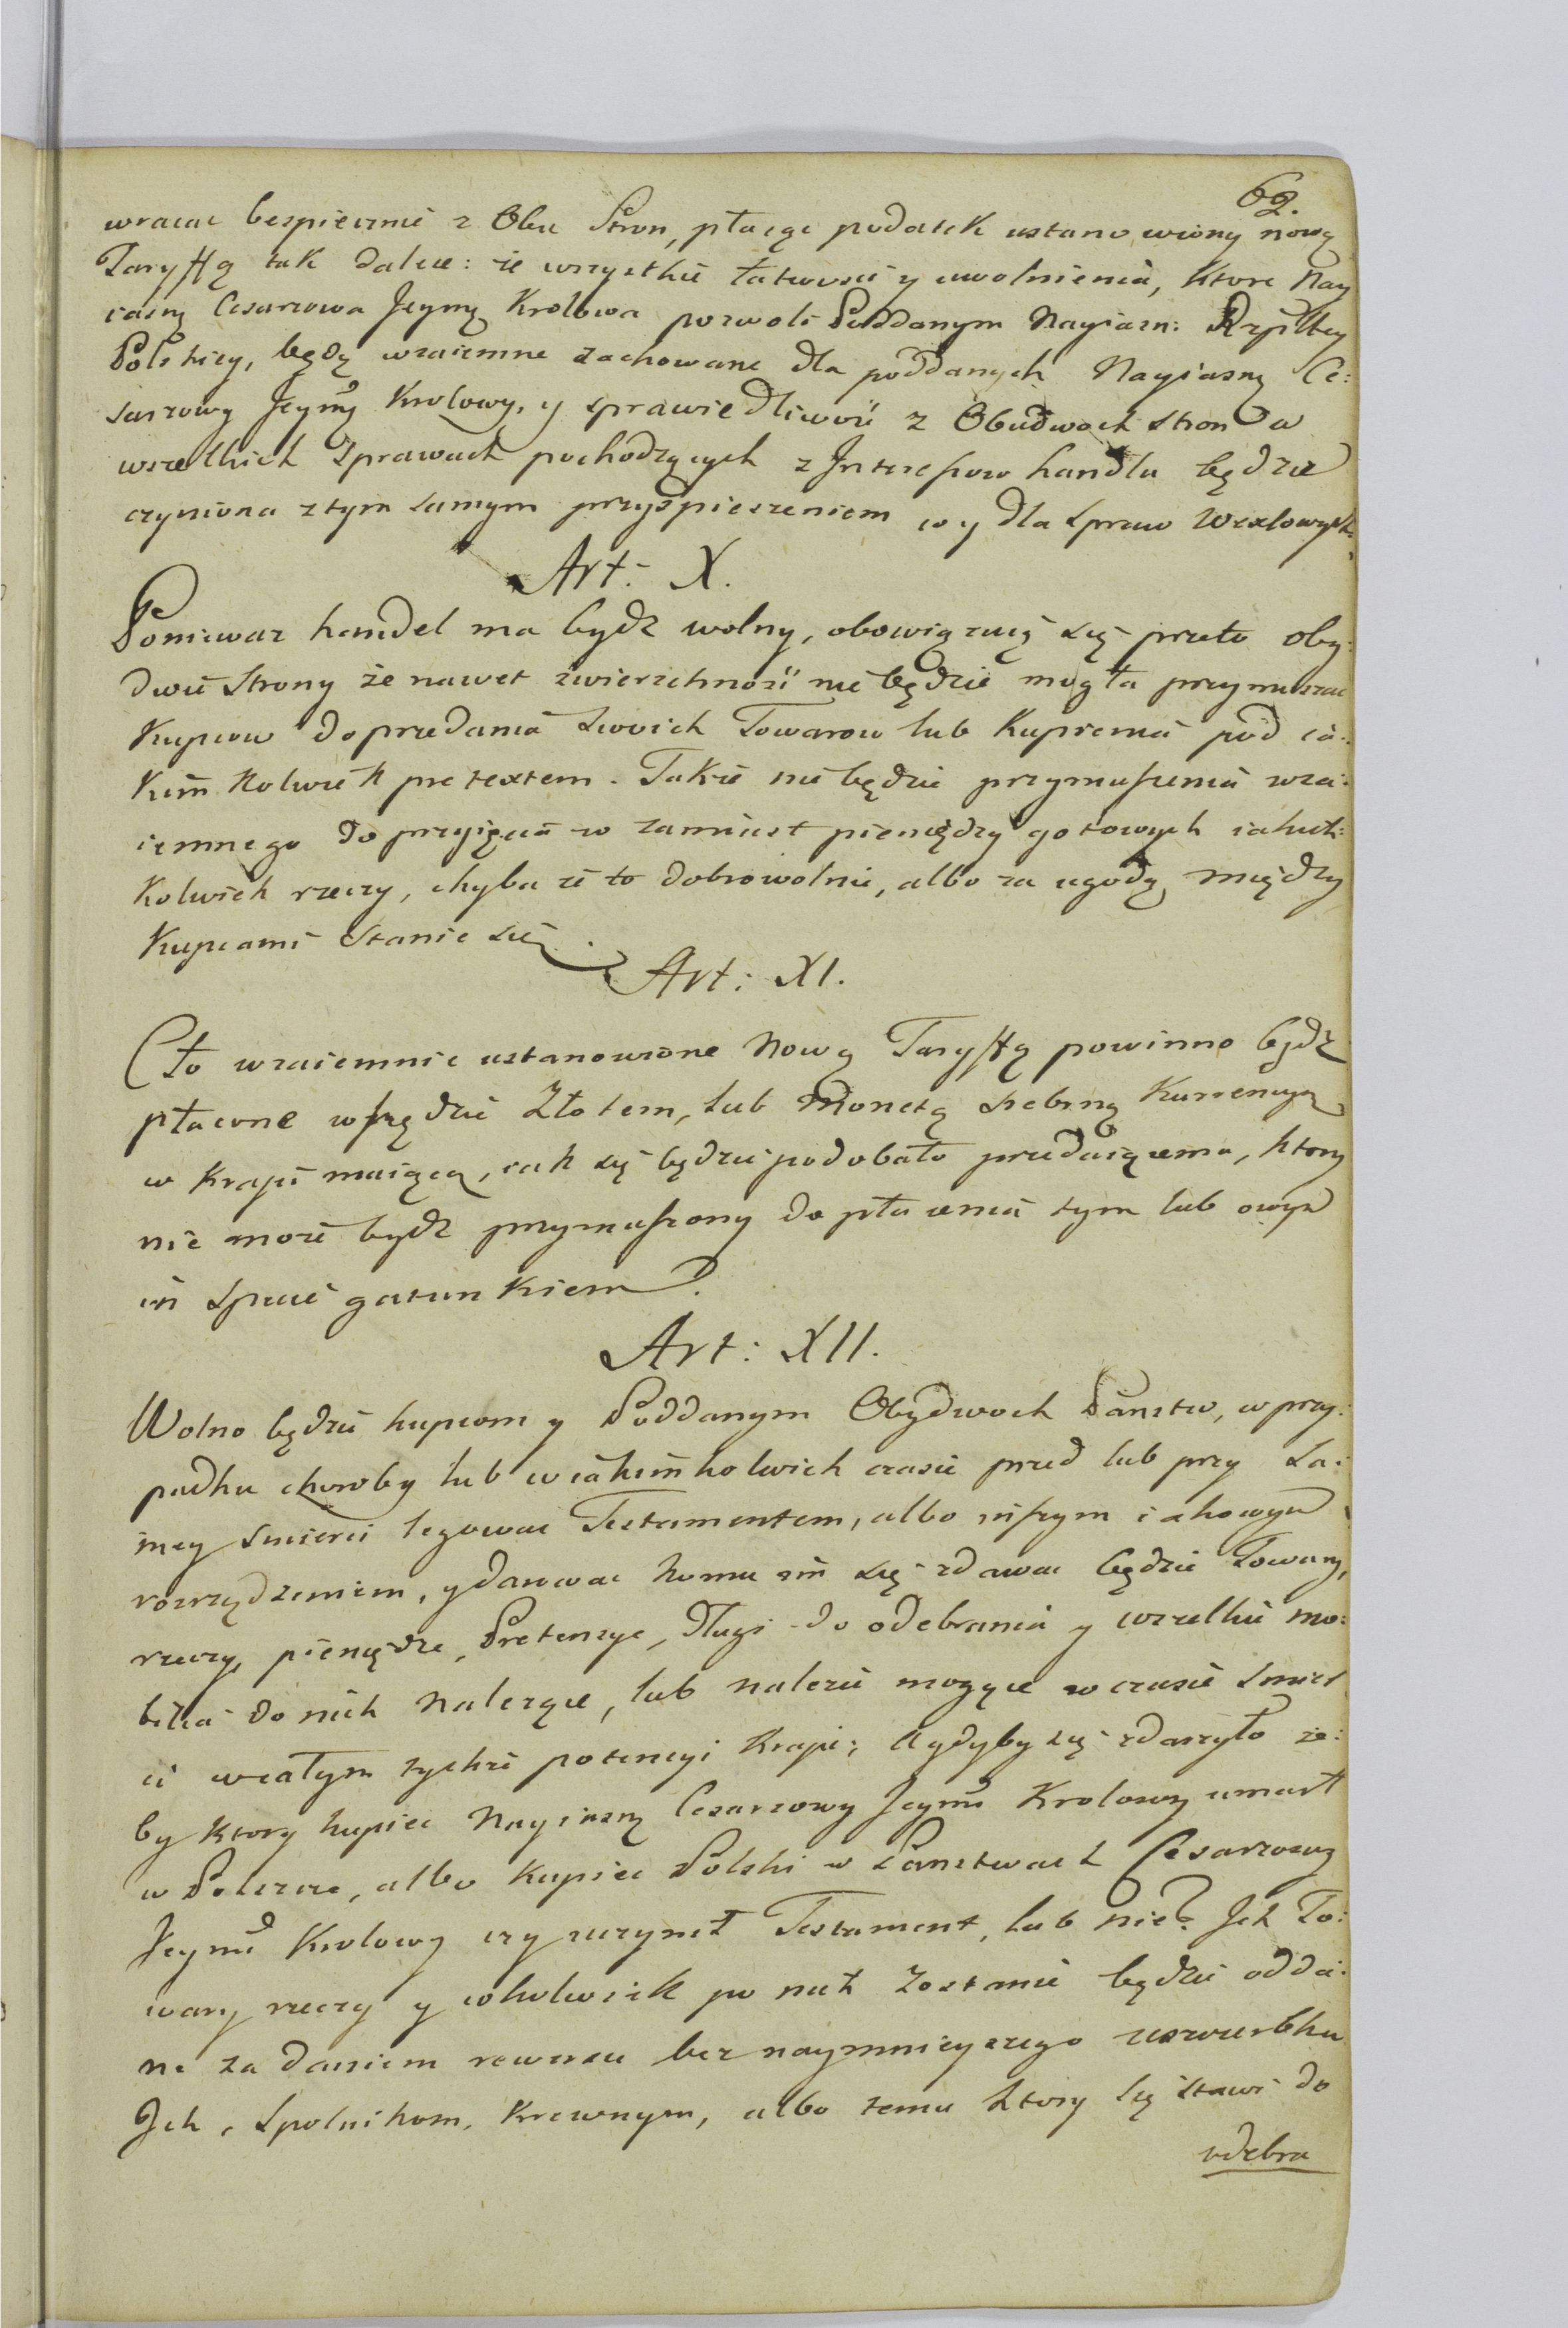 62.
wracac bespiecznie z Obu Stron, płacąc podatek ustanowiony nową
Taryffą tak dalece: że wszystkie łatwości y uwolnienia, ktore Nay
iasn Cesarzowa Jeymć Krolowa pozwoli Poddanym Nayiasn: Rzpltey
Polskiey, będą wzaiemne zachowane dla poddanych Nayiasn Ce:
sarzowy Jeymć Krolowy, y sprawiedliwość z Obudwoch Stron w
wszelkich sprawach pochodzących z Interessow handlu będzie
czyniona z tym samym przyspieszeniem co y dla spraw Wexlowych.
Art: X.
Poniewaz handel ma bydz wolny, obowiązuią się przeto oby:
dwie Strony że nawet zwierzchność nie będzie mogła przymuszac
Kupcow do przedania swoich Towarow lub Kupienia pod ia:
kim kolwiek pretextem. Takze nie będzie przymuszenia wza:
iemnego do przyięcia w zamiast pieniędzy gotowych iakich:
kolwiek rzeczy, chyba że to dobrowolnie, albo za ugodą między
Kupcami stanie się.
Art: XI.
Cło wzaiemnie ustanowione Nową Taryffą powinno bydz
płacone wszędzie Złotem, lub Monetą srebrną Kurrencyą
w Kraju maiącą, iak się będzie podobało przedaiącemu, ktory
nie może bydz przymuszony do płacenia tym lub owym
in specie gatunkiem.
Art: XII.
Wolno będzie kupcom y Poddanym Obydwoch Państw, w przy:
padku choroby lub w iakimkolwiek czasie przed lub przy sa:
mey smierci legowac Testamentem, albo inszym iakowym
rozrządzeniem, y darowac komu im się zdawac będzie Towary,
rzeczy, pieniądze, Pretensye, Długi do odebrania y wszelkie mo:
bilia do nich Nalezące, lub nalezec mogące w czasie smier
ci w całym tychze potencyi Kraju; A gdyby się zdarzyło ze:
by ktory kupiec Nayiasn Cesarzowy Jeymć Krolowy umarł
w Polszcze, albo Kupiec Polski w Panstwach Cesarzowy
Jeymć Krolowy czy uczynił Testament, lub nie? Jch To:
wary rzeczy y cokolwiek po nich zostanie będzie odda:
ne za daniem rewersu bez naymnieyszego uszczerbku
Jch, spolnikom, Krewnym, albo temu ktory się stawi do
odebra